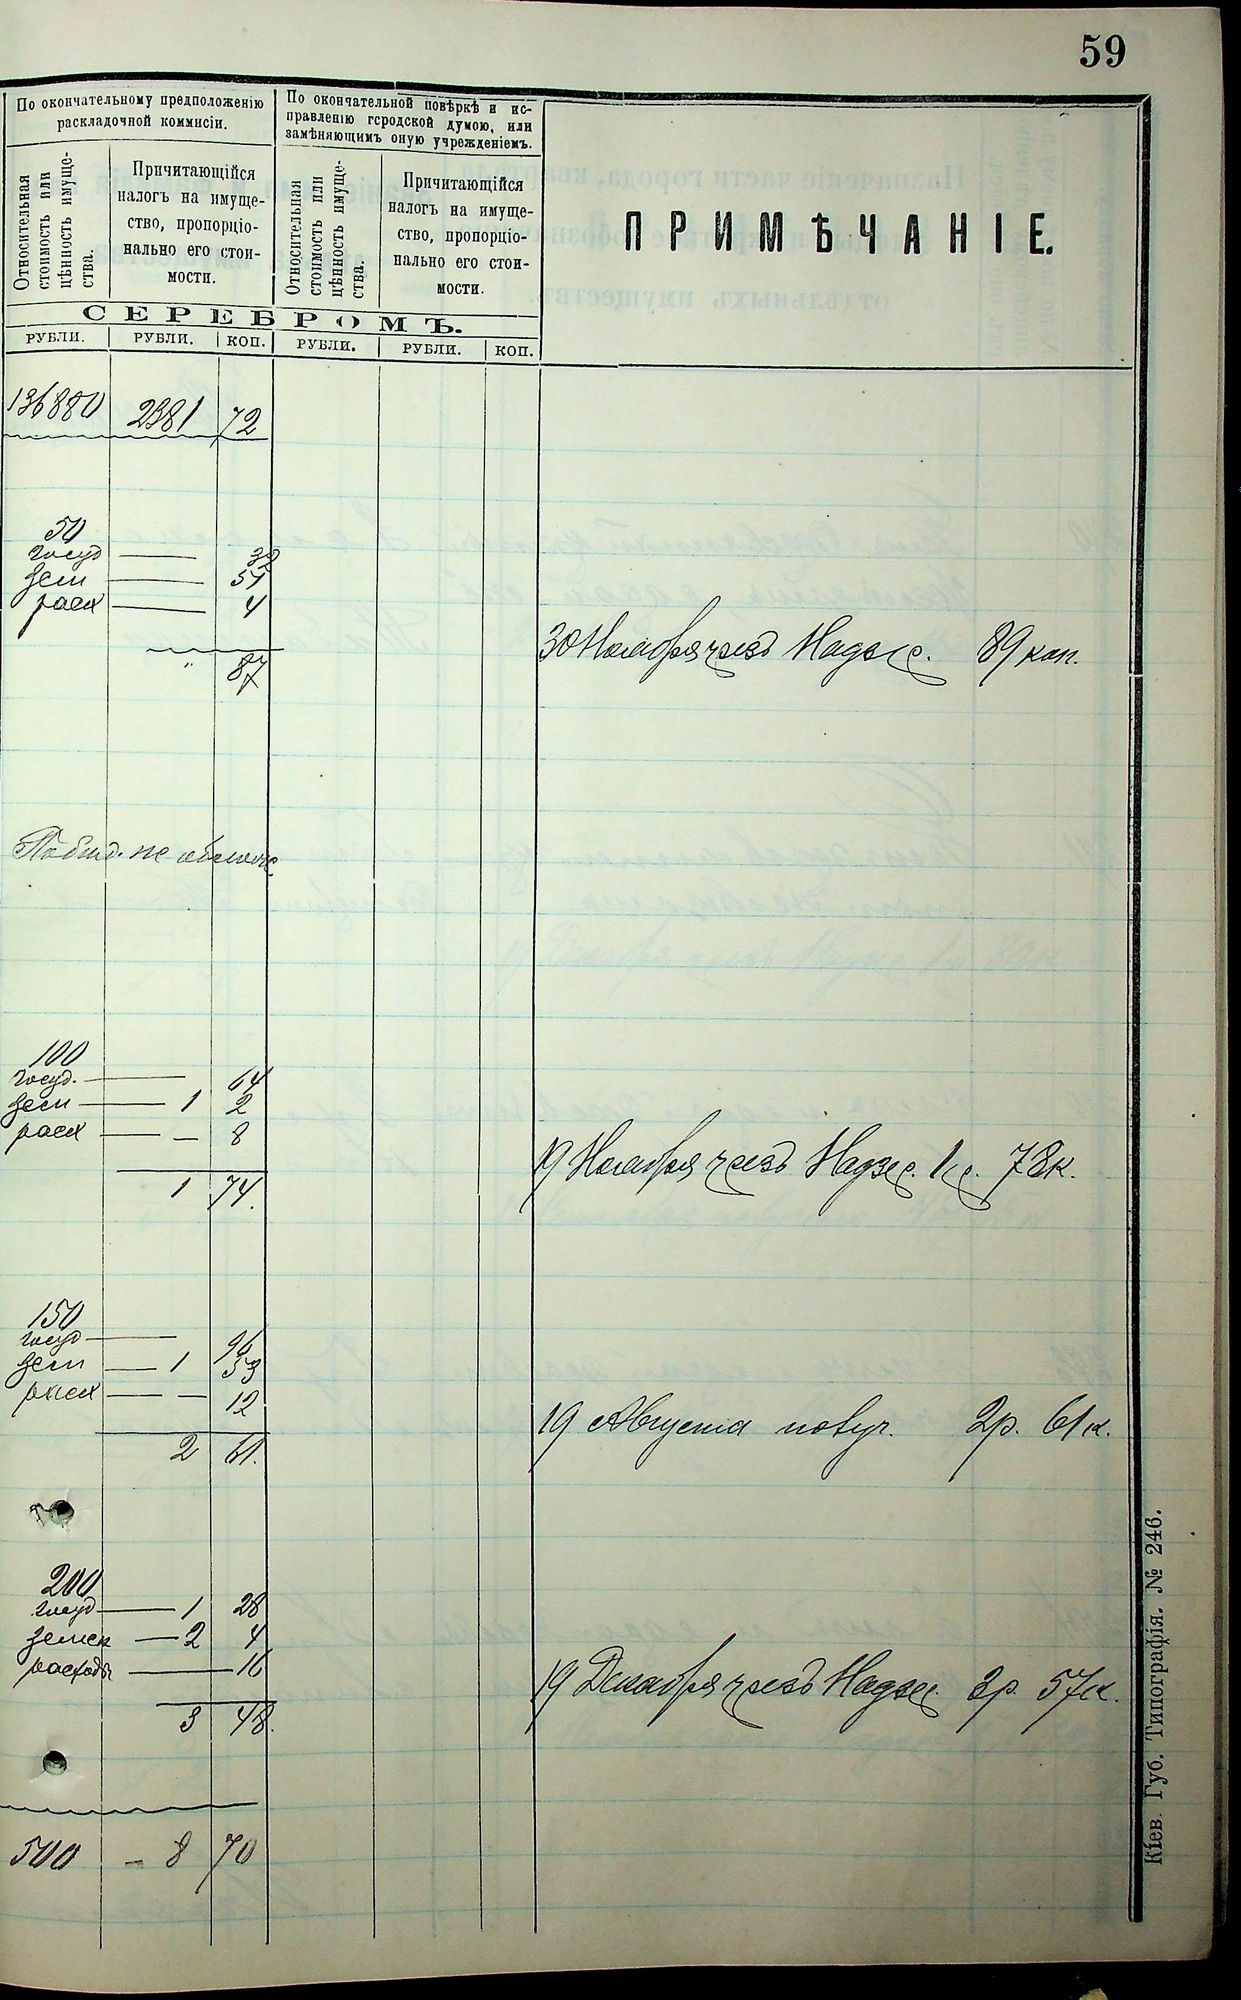 59
По окончательному предположенію
раскладочной коммисіи.
По окончательной повѣркѣ и ис-
правленію городской думою, или
замѣняющимъ оную учрежденіемъ.
Относительная
стоимость или
цѣнность имуще-
ства.
Причитающійся
налогъ на имуще-
ство, пропорціо-
нально его стои-
мости.
Относительная
стоимость или
цѣнность имуще-
ства.
Причитающійся
налогъ на имуще-
ство, пропорціо-
нально его стои-
мости.
ПРИМѢЧАНІЕ.
СЕРЕБРОМЪ.
РУБЛИ. РУБЛИ. КОП. РУБЛИ. РУБЛИ. КОП.
136880 2381 72
50
госуд — 32
зем — 51
расх — 4
" 87
30 Ноября чрезъ Надз 89 коп.
не облож
100
госуд. — 64
зем — 1 2
расх — — 8
1 74.
19 Ноября чрезъ Надз 1р. 78к.
150
госуд — 96
зем — 1 53
расх — — 12
2 61.
19 Августа получ. 2р. 61к.
200
госуд — 1 28
земск — 2 4
расходы — 16
3 48.
19 Декабря чрезъ Надз 3р. 57к.
500 - 8 70
Кіев. Губ. Типографія. № 246.